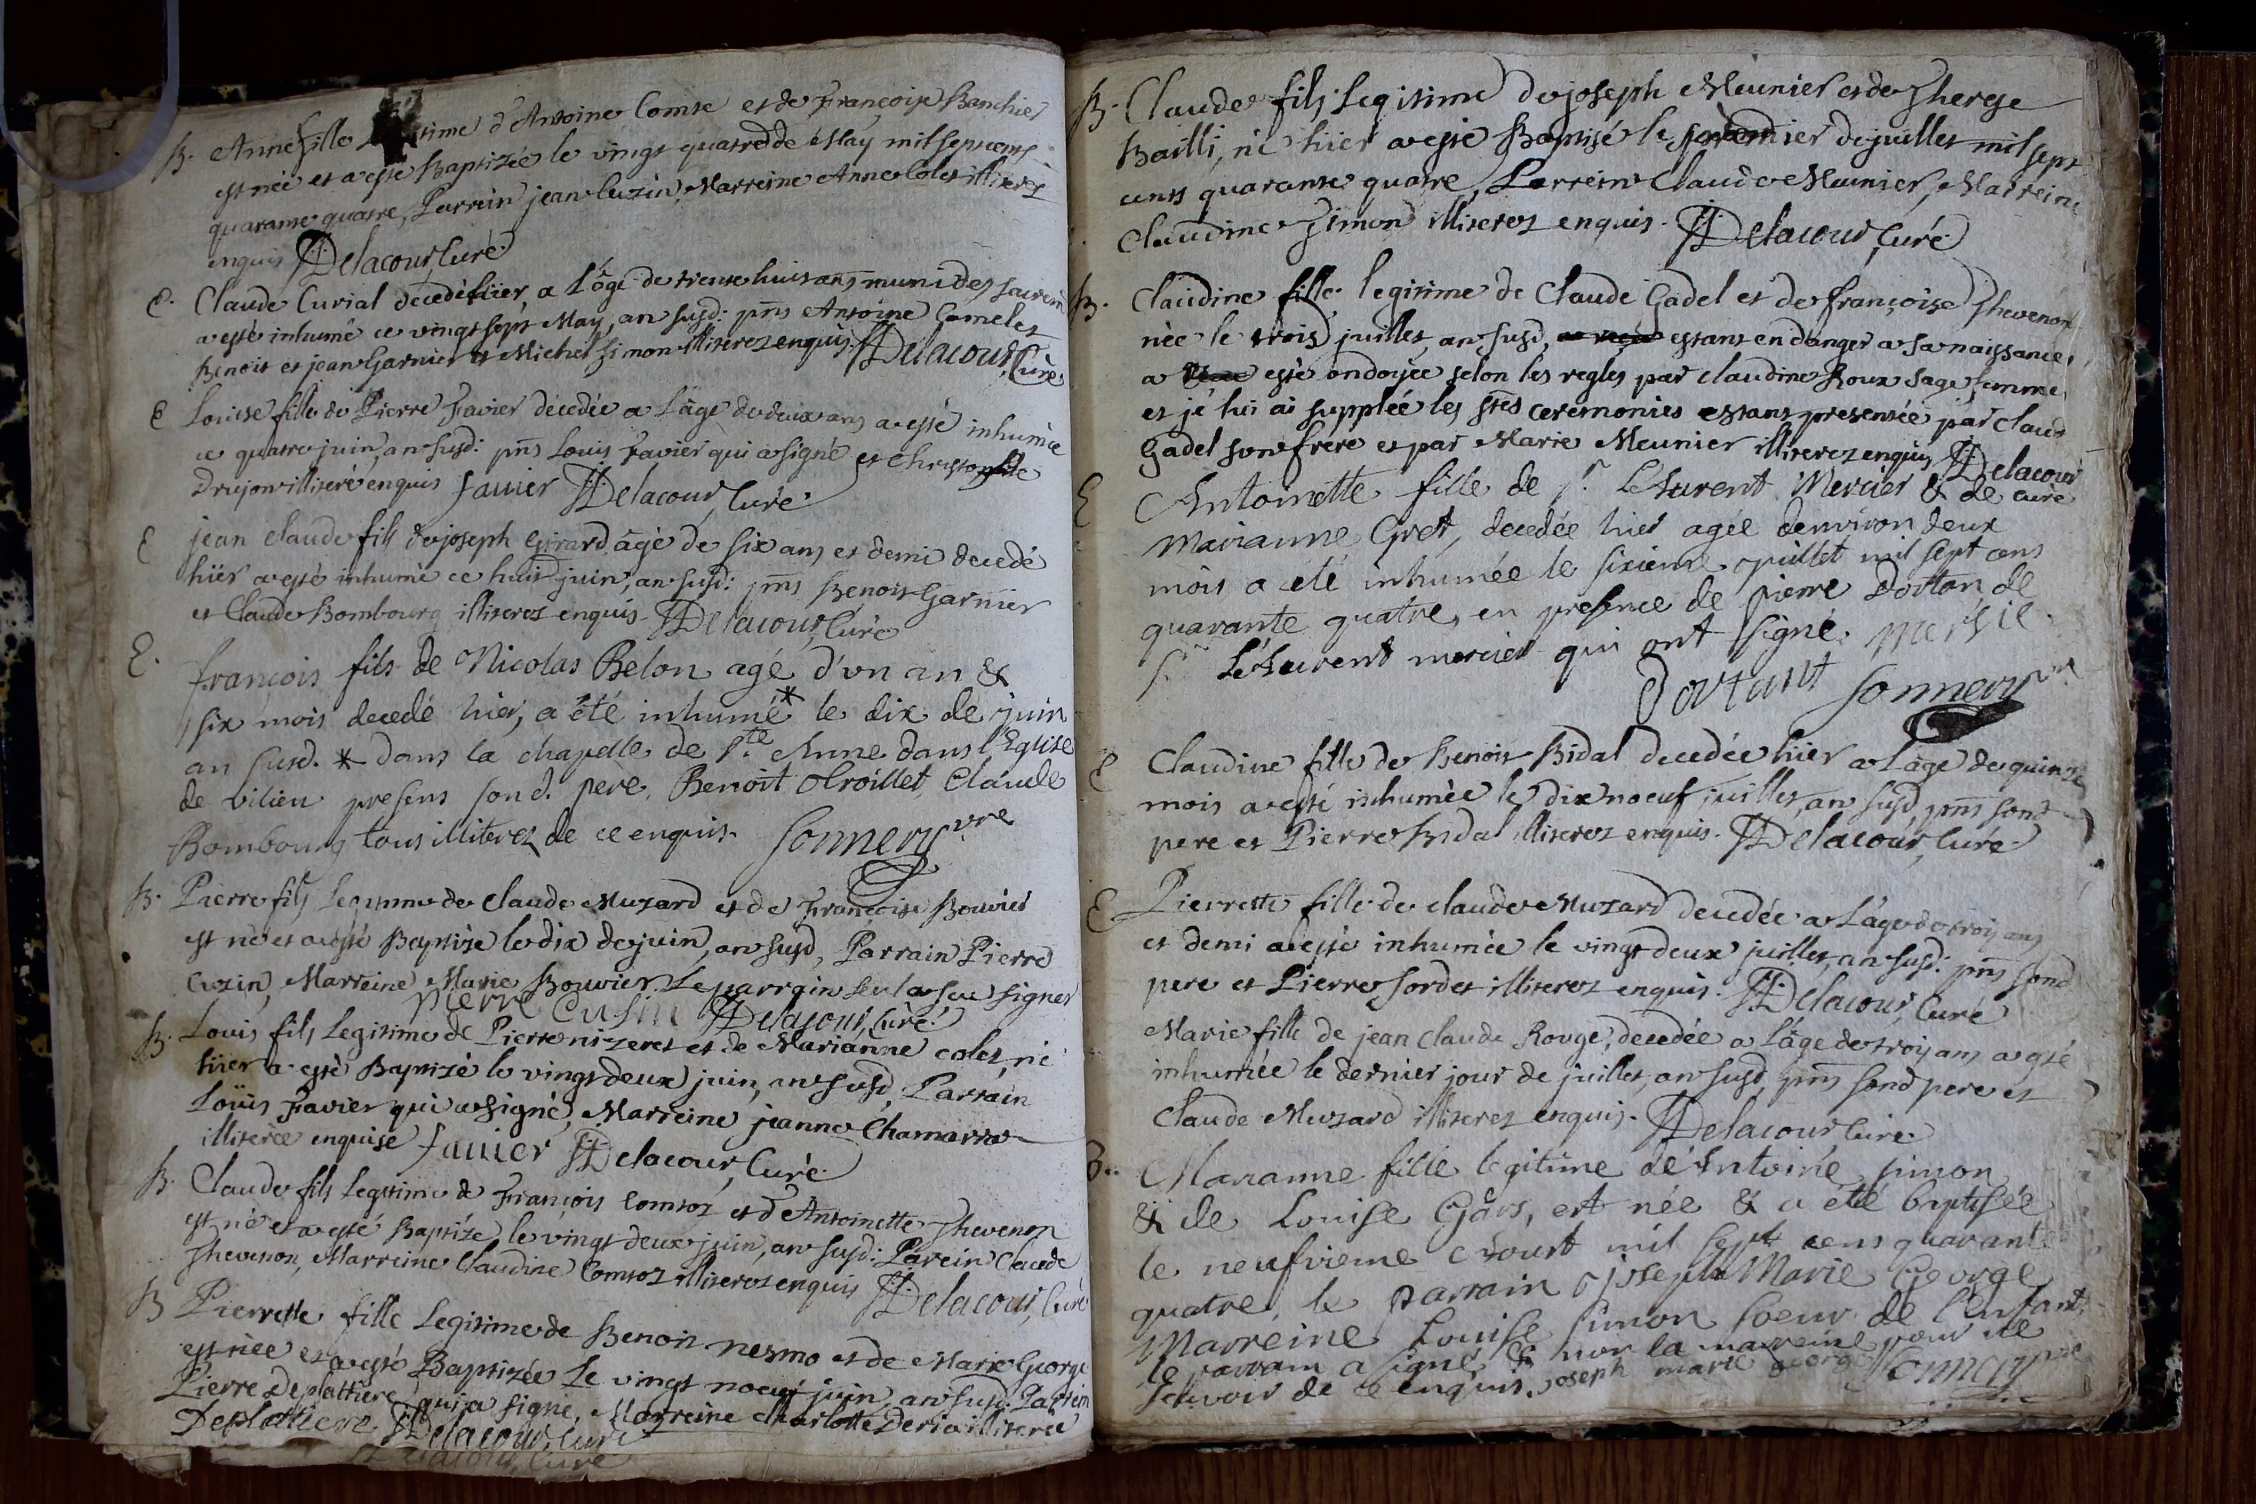 B. Anne fille d'Antoine Comte et de Françoise Banchier
est née et a esté Baptizée le vingt quatre de May mil sept cens
quarante quatre, Parrein jean Cuzin, Marreine Anne Colet illiterez
enquis Delacour, Curé.
E. Claude Curial decedé hiier, a l'âge de trente huit ans muni des sacrem
a esté inhumé ce vingt sept May, an susd: pnts Antoine Comelet
Benoit et jean Garnier et Michel Simon illiterez enquis. Delacour, Curé
E Louise fille de Pierre Favier décedée a l'âge de deux ans a esté inhumée
ce quatre juin, an susd: pnts Louis Favier qui a signé et Christophle
Drujon illiteré enquis favier Delacour, Curé
E jean claude fils de joseph Girard âgé de six ans et demi decedé
hiier a esté inhumé ce huit juin, an susd: pnts Benoit Garnier
et Claude Bombourg illiterez enquis. Delacour, Curé
E. françois fils de Nicolas Belon agé d'vn an &
six mois decedé hier, a été inhumé * le dix de juin
an susd. * dans la chapelle de Ste Anne dans l'Eglise
de vilieu presens sond. pere, Benoît Claude
Bombourg tous illiterez de ce enquis. Sonnery vre
B. Pierre fils Legitime de Claude Muzard et de Françoise Bouvier
est né et a esté Baptize le dix de juin, an susd, Parrain Pierre
Cuzin, Marreine Marie Bouvier. Le parrain seul a sçu signer
pierre cusin Delacour, Curé.
B. Louis fils Legitime de Pierre nizeret et de Marianne colet, né
hiier a esté Baptizé le vingt deux juin, an susd, Parrain
Loüis Favier qui a signé, Marreine jeanne Chamarra
illiterée enquise favier Delacour, Curé.
B. Claude fils Legitime de François Comtoz et d'Antoinette Thevenon
est né et a esté Baptize le vingt deux juin, an susd: Parein Claude
Thevenon, Marreine Claudine Comtoz illiterez enquis Delacour, Curé
B Pierrette fille Legitime de Benoit nesmo et de Marie George
est née et a esté Baptizée Le vingt noeuf juin, an susd. Parrein
Pierre Deplattiere qui a signé, Marreine charlotte illiterée
Deplattiere. Delacour, Curé
Delacour, Curé
B. Claude fils Legitime de joseph Meunier et de Therese
Bailli, né hiier a esté Baptisé le premier de juillet mil sept
cents quarante quatre, Parrein Claude Meunier, Marreine
Claudine Simon illiterez enquis. Delacour, Curé.
B. Claudine fille legitime de Claude Gadel et de françoise Thevenon
née le trois juillet, an susd, estant en danger a sa naissance,
a esté ondoyée selon les regles par claudine Roux sage femme
et je lui ai suppléé les stes ceremonies estant presentée par Claude
Gadel son frere et par Marie Meunier illiterez enquis Delacour
curé
E Antoinette fille de Sr. Laurent Mercier & de
Marianne Gret, decedée hier agée denviron deux
mois a été inhumée le sixieme juillet mil sept cens
quarante quatre, en presence de pierre Dortan de
Sr Laurent mercier qui ont signé. mersie.
Dortant Sonnery vre
E Claudine fille de Benoit Bidal decedée hiier a l'âge de quinze
mois a esté inhumée le dix noeuf juillet, an susd, pnts sond
pere et Pierre Bidal illiterez enquis. Delacour, Curé.
E Pierrette fille de claude Muzard decedée a l'âge de trois ans
et demi a esté inhumée le vingt deux juillet, an susd: pnts sond
pere et Pierre Sordet illiterez enquis. Delacour, Curé
Marie fille de jean Claude Rouge, decedée a l'âge de trois ans a esté
inhumée le dernier jour de juillet, an susd, pnts sond pere et
Claude Muzard illiterez enquis. Delacour, Curé.
B. Marianne fille legitime de Antoine simon
& de Louise Gârs, est née & a eté baptisée
le neufvieme d'aoust mil sept cens quarante
quatre, le parrain joseph Marie George,
Marreine Louise simon soeur de l'enfant,
le parrain a signé & non la marreine pour ne
sçavoir de ce enquis. joseph marie george Sonnery vre